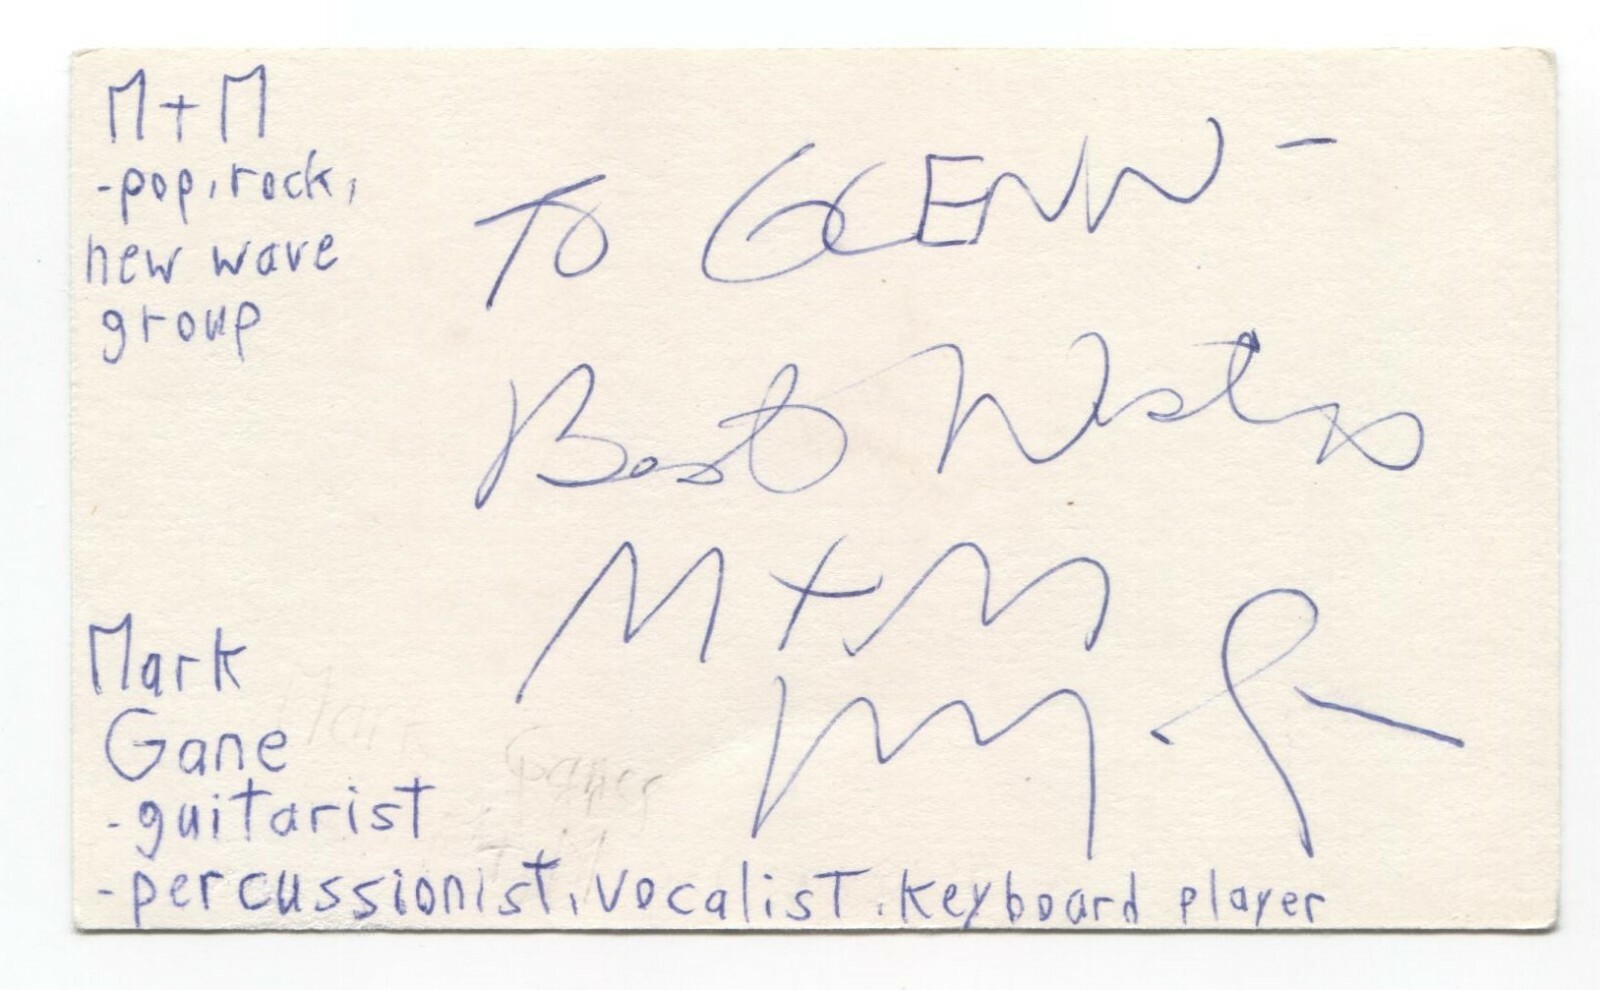 M+M
-pop, rock,
new wave
group
To GLENN -
Best Wishes
M+M
Mark
Gane
-guitarist
-percussionist, vocalist, keyboard player